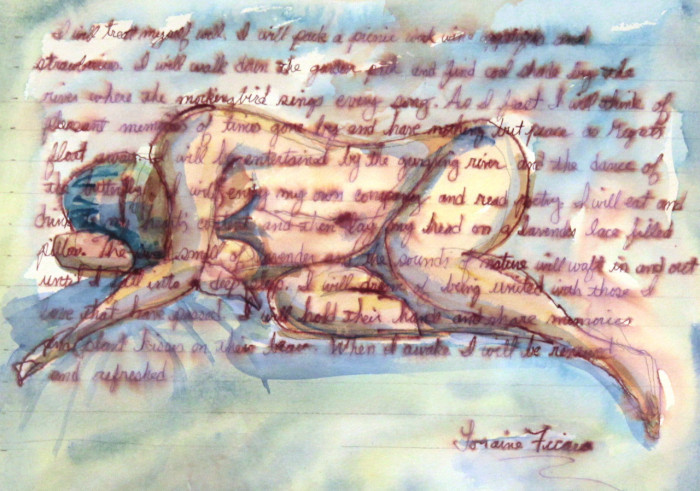 I will treat myself well. I will pack a picnic with wine and
strawberries. I will walk down the garden path and find cool shade by the
river where the mockingbird sings every song. As I feast I will think of
pleasant memories of times gone by and have nothing but peace as regrets
float away. I will be entertained by the gurgling river and the dance of
the butterfly. I will enjoy my own company and read poetry. I will eat and
drink to my content and then lay my head on a lavender lace filled
pillow. The smell of lavender and the sounds of nature will waft in and out
until I fall into a deep sleep. I will dream of being united with those I
love that have passed. I will hold their hands and share memories
and plant kisses on their brow. When I awake I will be renewed
and refreshed
Loraine Ficara